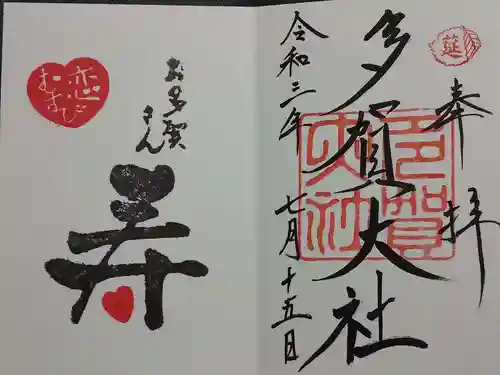 奉拝
多賀大社
令和三年
七月十五日
多賀大社
莚
お多賀さん
寿
恋むすび